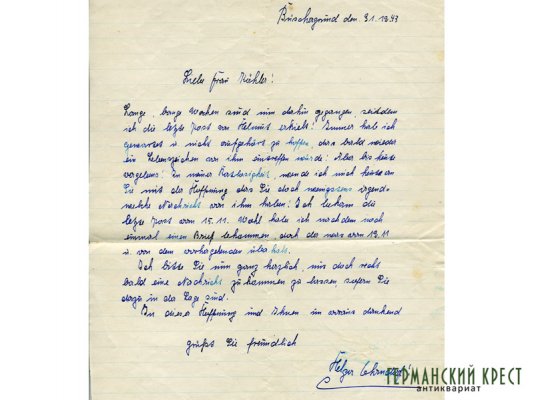 Buschagrund den 9.1.1943
Liebe Frau Köhler!
Lange, bange Wochen sind nun dahin gegangen, seitdem
ich die letzte Post von Helmut erhielt! Immer hab ich
gewartet u. nicht aufgehört zu hoffen, das bald wieder
ein Lebenszeichen von ihm eintreffen würde! Aber bis heute
vergebens! In meiner Ratlosigkeit, wende ich mich heute an
Sie mit der Hoffnung das Sie doch wenigstens irgend-
welche Nachricht von ihm haben! Ich bekam die
letzte Post vom 15.11. Wohl habe ich nachdem noch
einmal einen Brief bekommen, doch der war vom 13.11
u. von dem vorhergehenden
Ich bitte Sie nun ganz herzlich, mir doch recht
bald eine Nachricht zukommen zu lassen sofern Sie
dazu in der Lage sind.
In dieser Hoffnung und Ihnen im voraus dankend
grüßt Sie freundlich
ГЕРМАНСКИЙ КРЕСТ
антиквариат